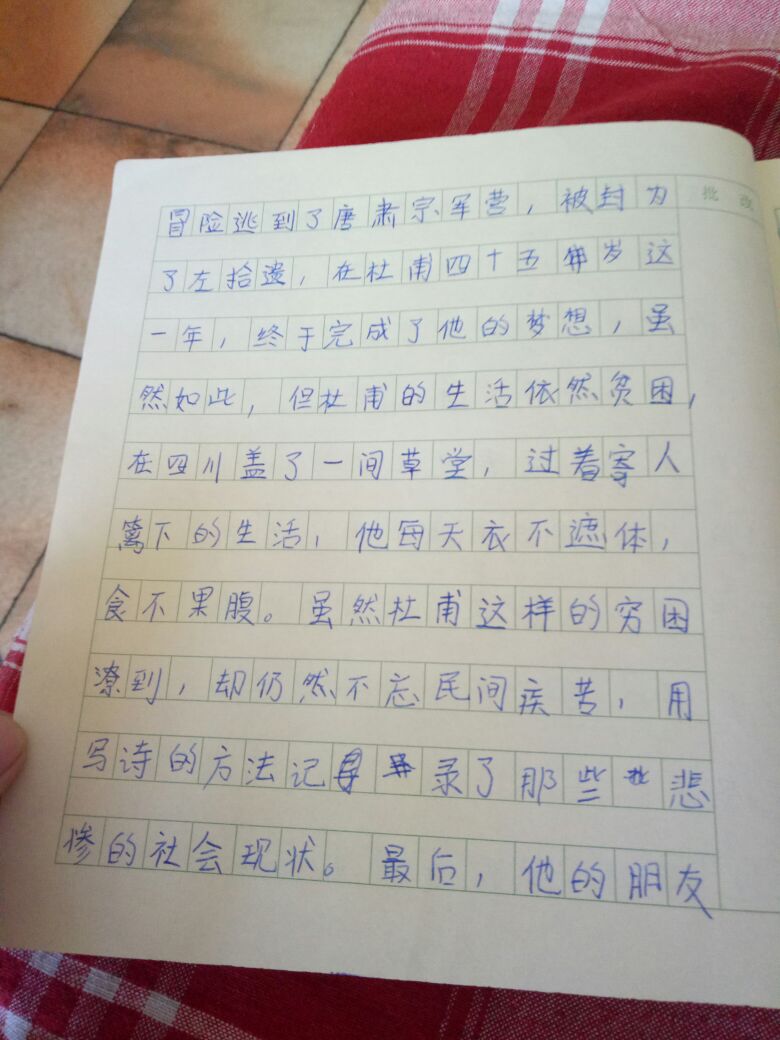 冒险逃到了唐肃宗军营，被封为
批改
了左拾遗，在杜甫四十五岁这
一年，终于完成了他的梦想，虽
然如此，但杜甫的生活依然贫困，
在四川盖了一间草堂，过着寄人
篱下的生活，他每天衣不遮体，
食不果腹。虽然杜甫这样的穷困
潦到，却仍然不忘民间疾苦，用
写诗的方法记录了那些悲
惨的社会现状。最后，他的朋友